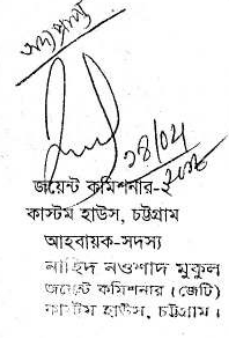 জয়েন্ট কমিশনার-২
কাস্টম হাউস, চট্টগ্রাম
আহবায়ক-সদস্য
নাহিদ নওশাদ মুকুল
জয়েন্ট কমিশনার (জেটি)
কাস্টম হাউস, চট্টগ্রাম।